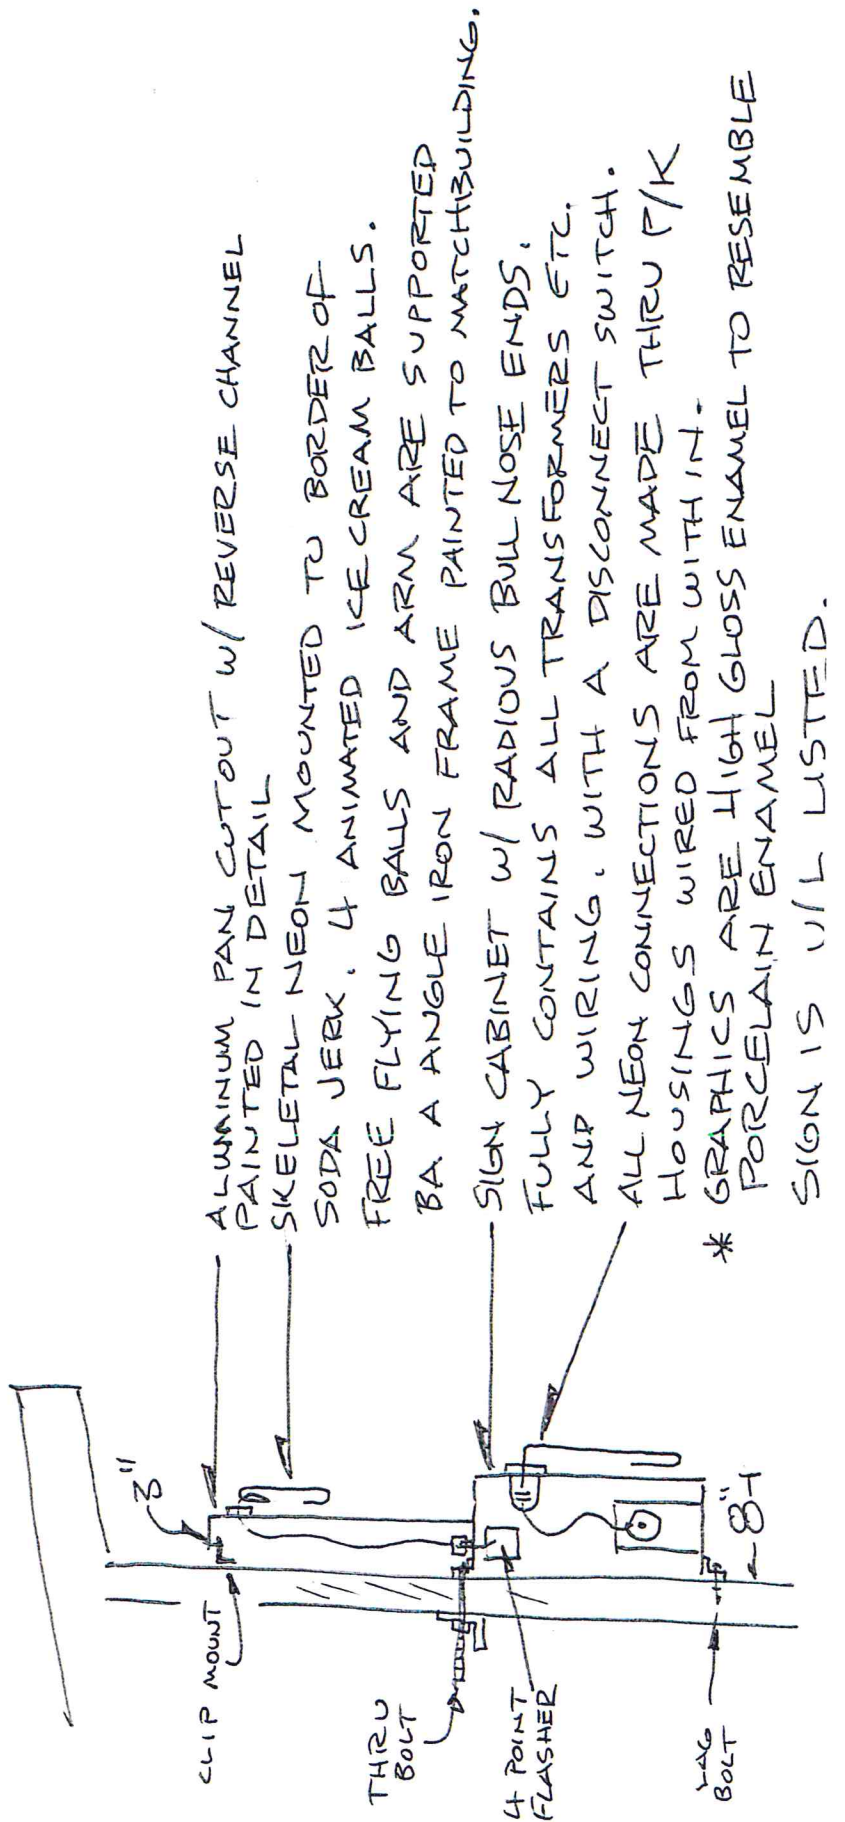 ALUMINUM PAN CUTOUT W/ REVERSE CHANNEL
PAINTED IN DETAIL
SKELETAL NEON MOUNTED TO BORDER OF
SODA JERK. 4 ANIMATED ICE CREAM BALLS.
FREE FLYING BALLS AND ARM ARE SUPPORTED
BA. A ANGLE IRON FRAME PAINTED TO MATCH BUILDING.
SIGN CABINET W/ RADIOUS BULL NOSE ENDS.
FULLY CONTAINS ALL TRANSFORMERS ETC.
AND WIRING. WITH A DISCONNECT SWITCH.
ALL NEON CONNECTIONS ARE MADE THRU P/K
HOUSINGS WIRED FROM WITH IN.
* GRAPHICS ARE HIGH GLOSS ENAMEL TO RESEMBLE
PORCELAIN ENAMEL
SIGN IS U/L LISTED.
3"
CLIP MOUNT
THRU
BOLT
4 POINT
FLASHER
LAG
BOLT
8"